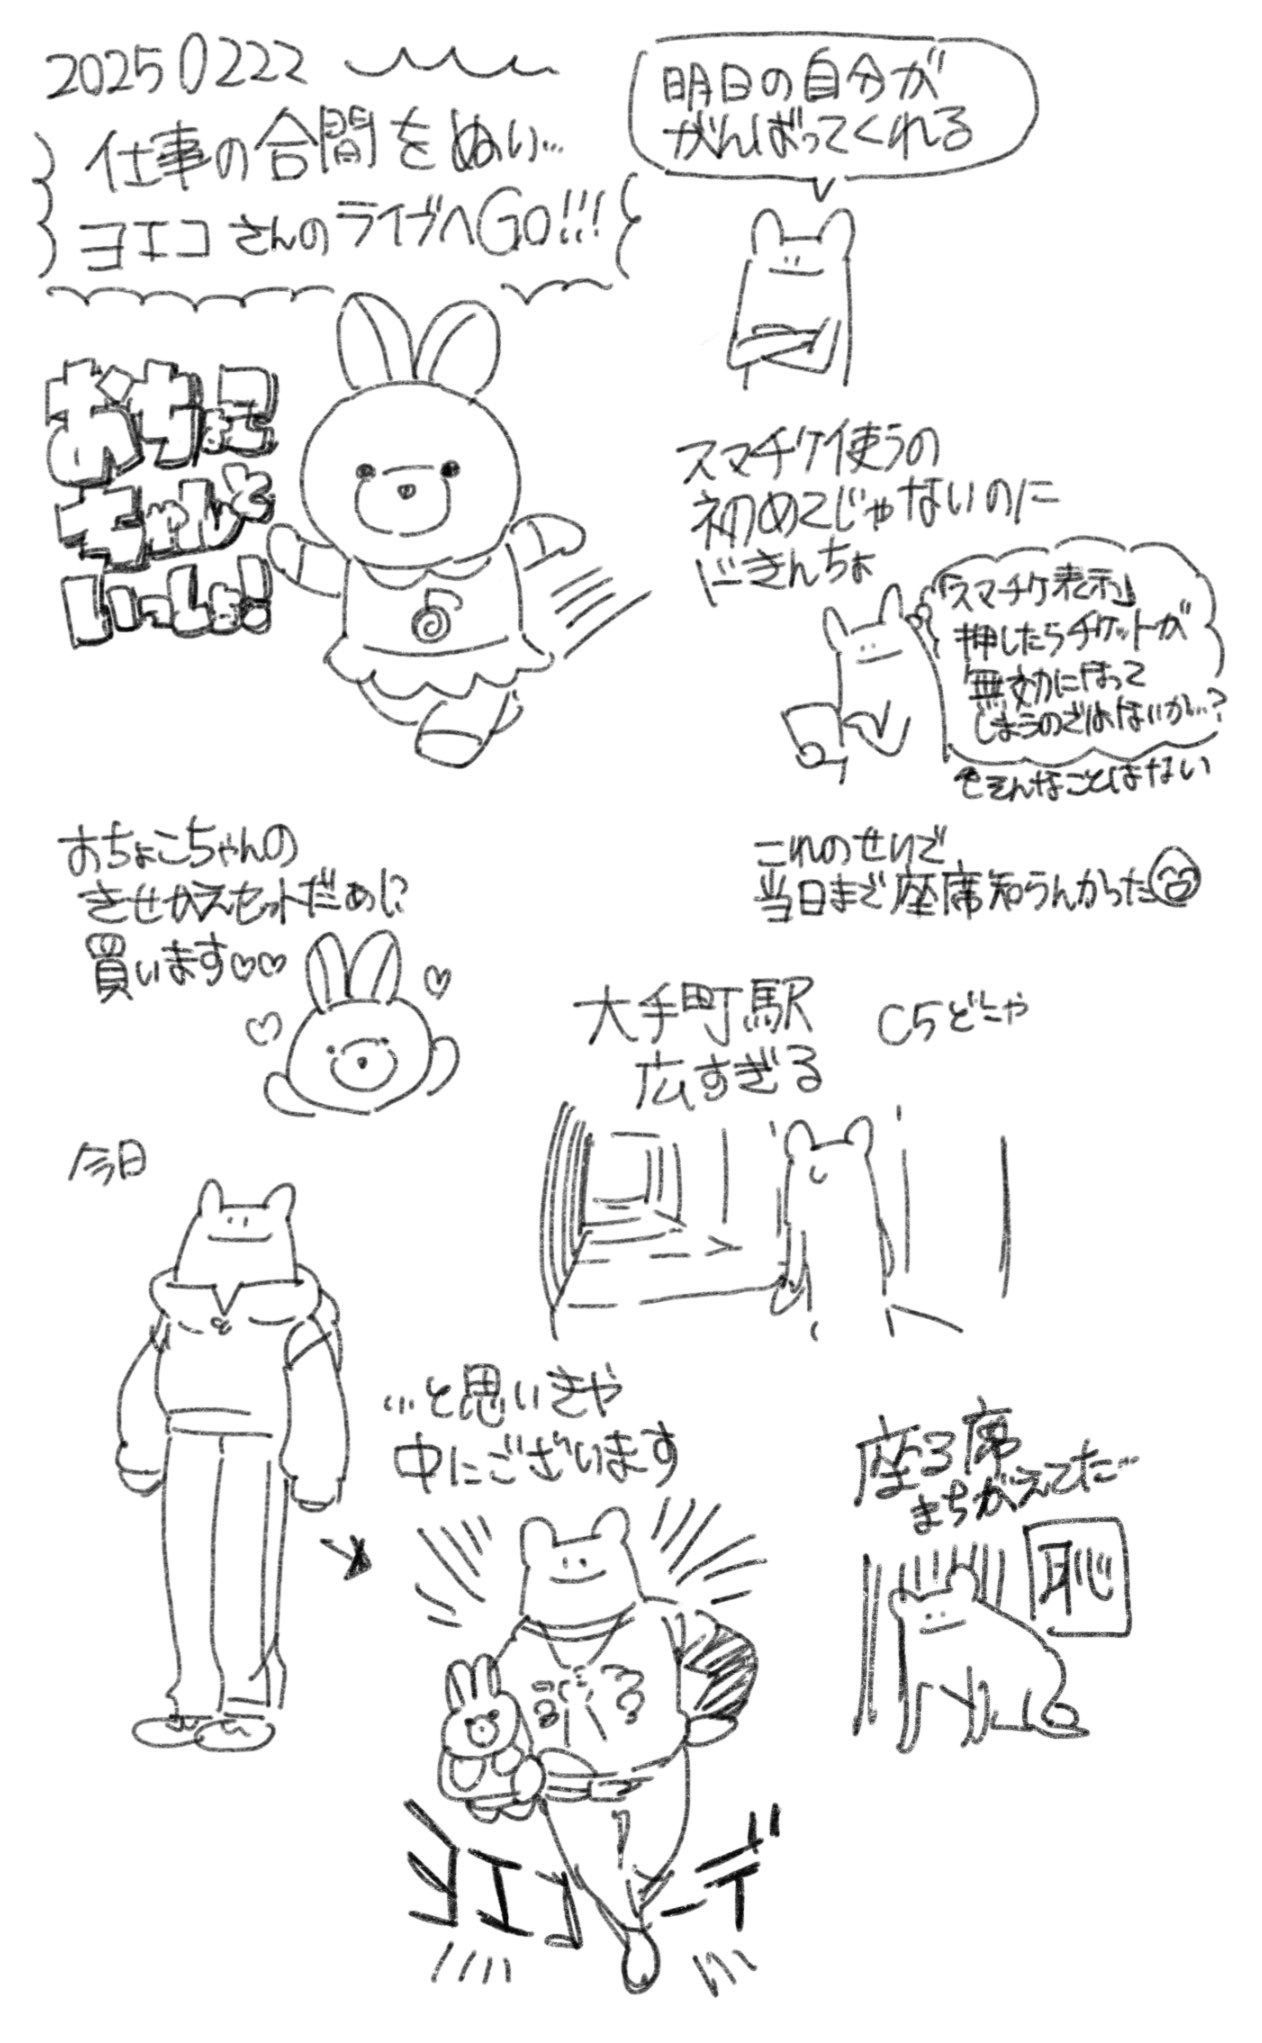 20250222
仕事の合間をぬい…
ヨエコさんのライブへGO!!!
明日の自分が
がんばってくれる
おちょこ
ちゃんと
いっしょ!
スマチケ使うの
初めてじゃないのに
ドきんちょ
「スマチケ表示」
押したらチケットが
無効になって
しまうのではないか…?
そんなことはない
これのせいで
当日まで座席知らんかった
おちょこちゃんの
きせかえセットだぁめに
買います♡♡
大手町駅
広すぎる
C5どこや
今日
…と思いきや
中にございます
座る席
まちがえてた…
恥
ヨエコーデ